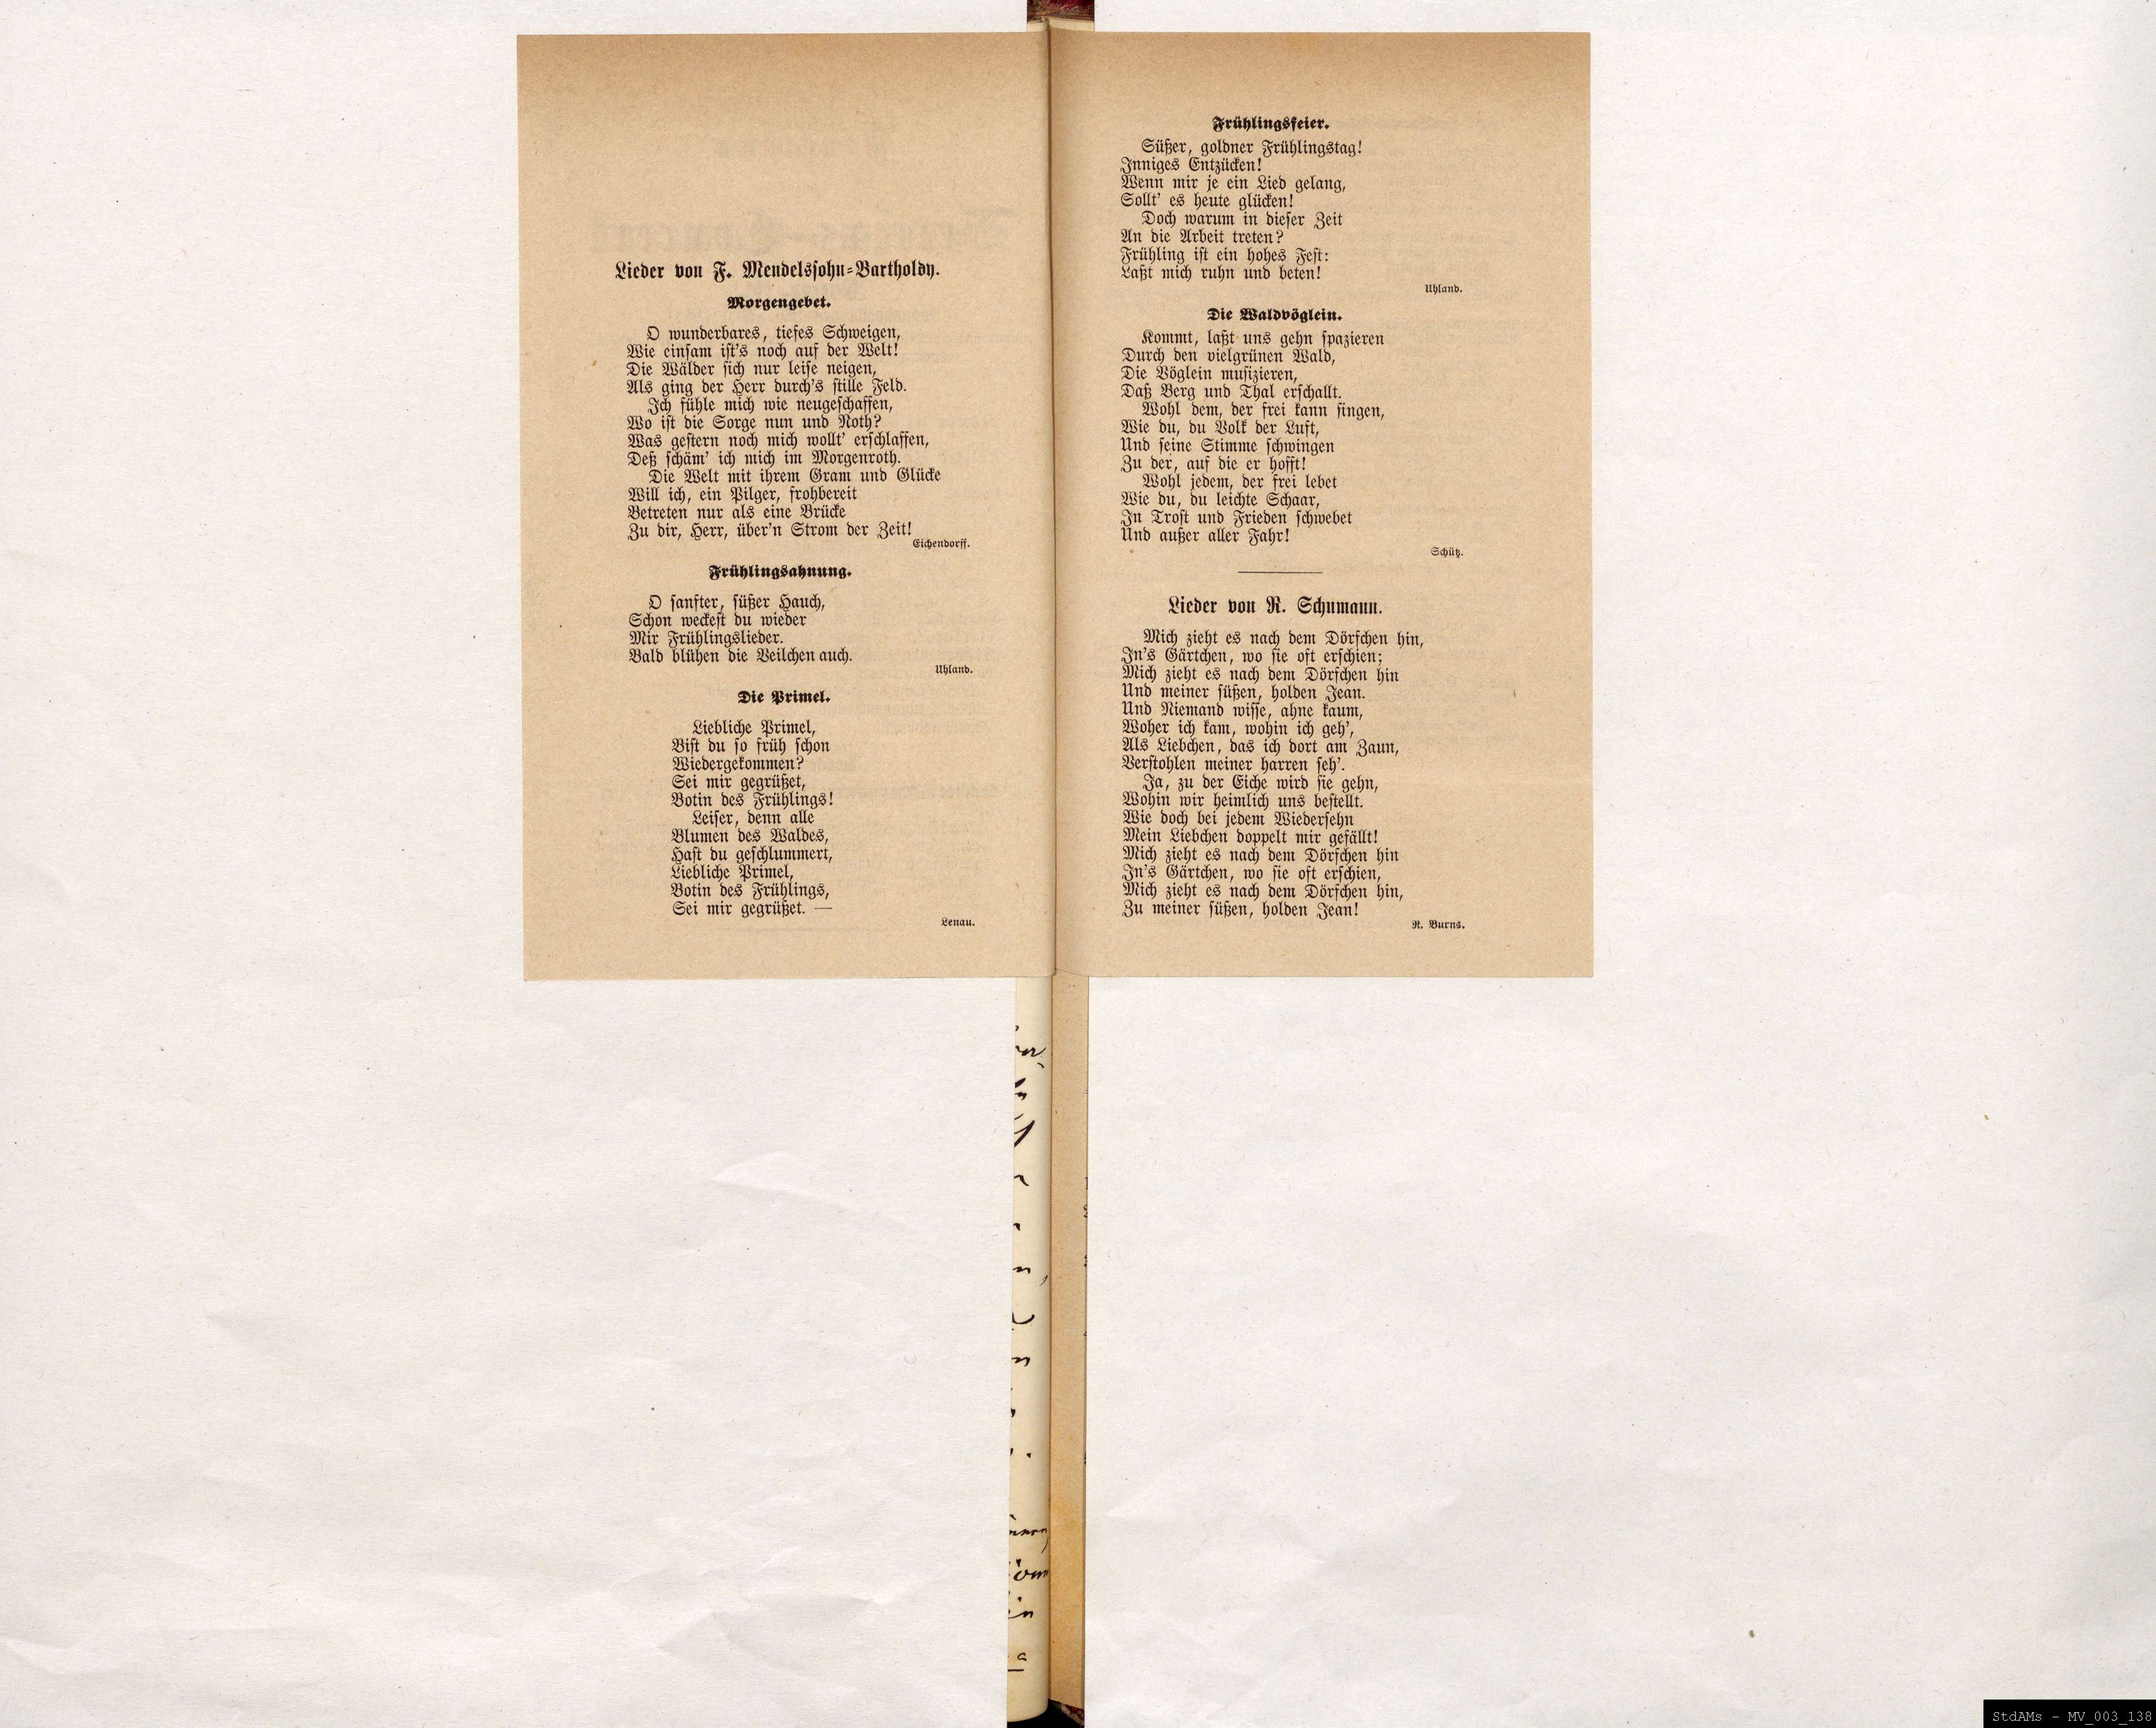 Lieder von F. Mendelssohn-Bartholdy.
Morgengebet.
O wunderbares, tiefes Schweigen,
Wie einsam ist's noch auf der Welt!
Die Wälder sich nur leise neigen,
Als ging der Herr durch's stille Feld.
Ich fühle mich wie neugeschaffen,
Wo ist die Sorge nun und Noth?
Was gestern noch mich wollt' erschlaffen,
Deß schäm' ich mich im Morgenroth.
Die Welt mit ihrem Gram und Glücke
Will ich, ein Pilger, frohbereit
Betreten nur als eine Brücke
Zu dir, Herr, über'n Strom der Zeit!
Eichendorff.
Frühlingsahnung.
O sanfter, süßer Hauch,
Schon weckest du wieder
Mir Frühlingslieder.
Bald blühen die Veilchen auch.
Uhland.
Die Primel.
Liebliche Primel,
Bist du so früh schon
Wiedergekommen?
Sei mir gegrüßet,
Botin des Frühlings!
Leiser, denn alle
Blumen des Waldes,
Hast du geschlummert,
Liebliche Primel,
Botin des Frühlings,
Sei mir gegrüßet. —
Lenau.
Frühlingsfeier.
Süßer, goldner Frühlingstag!
Inniges Entzücken!
Wenn mir je ein Lied gelang,
Sollt' es heute glücken!
Doch warum in dieser Zeit
An die Arbeit treten?
Frühling ist ein hohes Fest:
Laßt mich ruhn und beten!
Uhland.
Die Waldvöglein.
Kommt, laßt uns gehn spazieren
Durch den vielgrünen Wald,
Die Vöglein musizieren,
Daß Berg und Thal erschallt.
Wohl dem, der frei kann singen,
Wie du, du Volk der Luft,
Und seine Stimme schwingen
Zu der, auf die er hofft!
Wohl jedem, der frei lebet
Wie du, du leichte Schaar,
In Trost und Frieden schwebet
Und außer aller Fahr!
Schütz.
Lieder von R. Schumann.
Mich zieht es nach dem Dörfchen hin,
In's Gärtchen, wo sie oft erschien;
Mich zieht es nach dem Dörfchen hin
Und meiner süßen, holden Jean.
Und Niemand wisse, ahne kaum,
Woher ich kam, wohin ich geh',
Als Liebchen, das ich dort am Zaun,
Verstohlen meiner harren seh'.
Ja, zu der Eiche wird sie gehn,
Wohin wir heimlich uns bestellt.
Wie doch bei jedem Wiedersehn
Mein Liebchen doppelt mir gefällt!
Mich zieht es nach dem Dörfchen hin
In's Gärtchen, wo sie oft erschien,
Mich zieht es nach dem Dörfchen hin,
Zu meiner süßen, holden Jean!
R. Burns.
StdAMs - MV_003_138